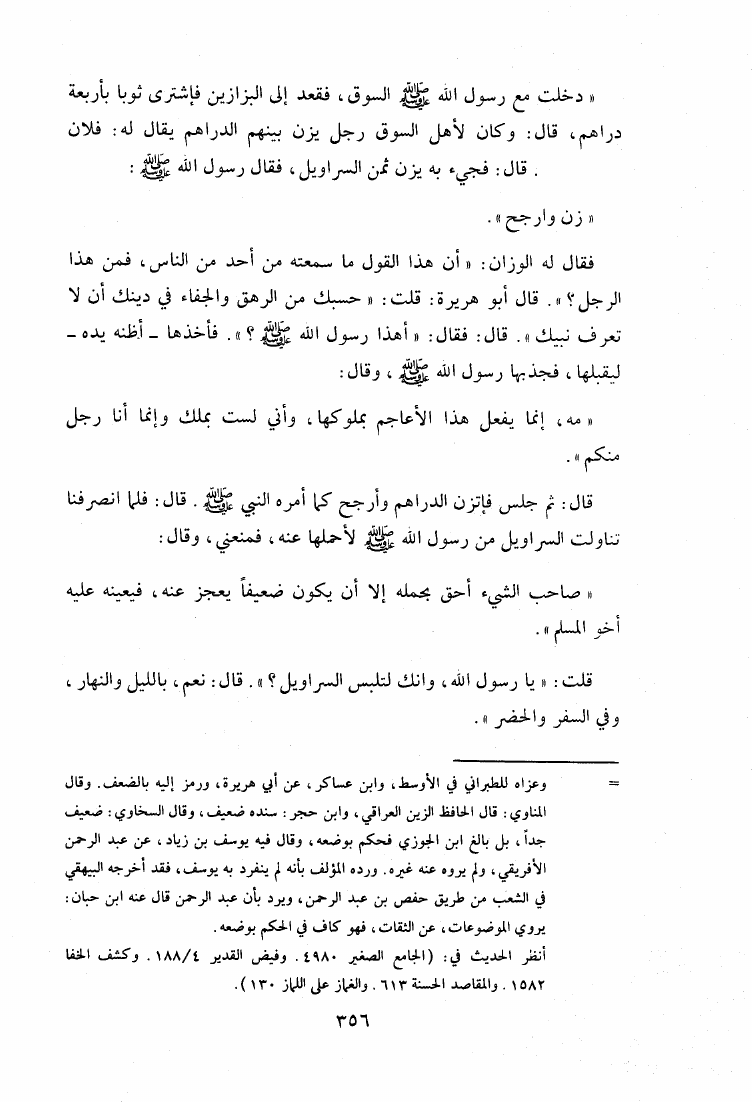 « دخلت مع رسول الله ﷺ السوق، فقعد إلى البزازين فإشترى ثوبا بأربعة
دراهم، قال: وكان لأهل السوق رجل يزن بينهم الدراهم يقال له: فلان
. قال: فجيء به يزن ثمن السراويل، فقال رسول الله ﷺ :
« زن وارجح ».
فقال له الوزان: « أن هذا القول ما سمعته من أحد من الناس، فمن هذا
الرجل؟ ». قال أبو هريرة: قلت: « حسبك من الرهق والجفاء في دينك أن لا
تعرف نبيك ». قال: فقال: « أهذا رسول الله ﷺ ؟ ». فأخذها ـ أظنه يده ـ
ليقبلها، فجذبها رسول الله ﷺ ، وقال:
« مه، إنما يفعل هذا الأعاجم بملوكها، وأني لست بملك وإنما أنا رجل
منكم ».
قال: ثم جلس فإتزن الدراهم وأرجح كما أمره النبي ﷺ . قال: فلما انصرفنا
تناولت السراويل من رسول الله ﷺ لأحملها عنه، فمنعني، وقال:
« صاحب الشيء أحق بحمله إلا أن يكون ضعيفاً يعجز عنه، فيعينه عليه
أخو المسلم ».
قلت: « يا رسول الله، وانك لتلبس السراويل؟ ». قال: نعم، بالليل والنهار،
وفي السفر والحضر ».
= وعزاه للطبراني في الأوسط، وابن عساكر، عن أبي هريرة، ورمز إليه بالضعف. وقال
المناوي: قال الحافظ الزين العراقي، وابن حجر: سنده ضعيف، وقال السخاوي: ضعيف
جداً، بل بالغ ابن الجوزي فحكم بوضعه، وقال فيه يوسف بن زياد، عن عبد الرحمن
الأفريقي، ولم يروه عنه غيره. ورده المؤلف بأنه لم ينفرد به يوسف، فقد أخرجه البيهقي
في الشعب من طريق حفص بن عبد الرحمن، ويرد بأن عبد الرحمن قال عنه ابن حبان:
يروي الموضوعات، عن الثقات، فهو كاف في الحكم بوضعه.
أنظر الحديث في: (الجامع الصغير ٤٩٨٠. وفيض القدير ١٨٨/٤. وكشف الخفا
١٥٨٢. والمقاصد الحسنة ٦١٣. والغماز على اللماز ١٣٠).
٣٥٦